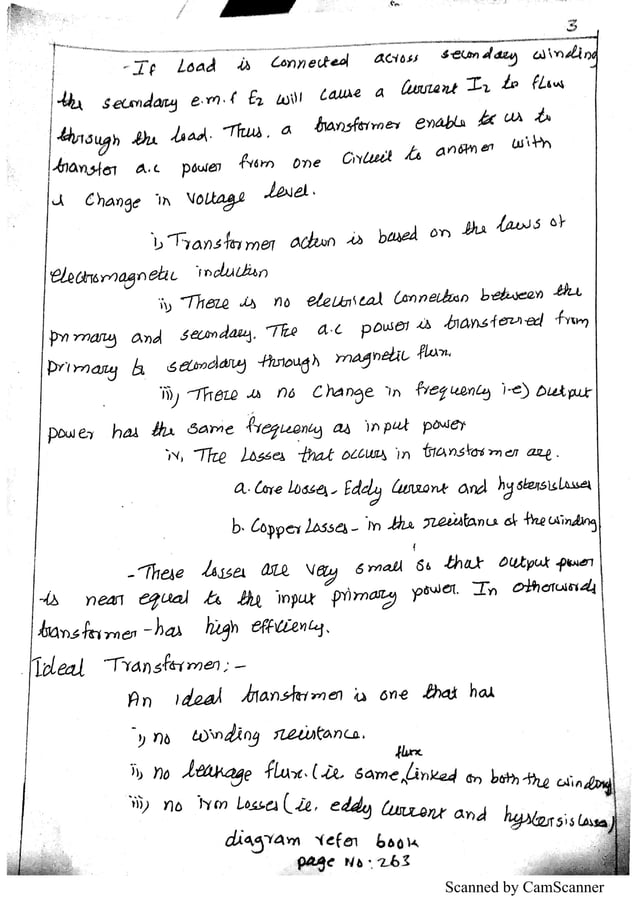 3
- If Load is Connected across secondary winding
the secondary e.m.f E2 will cause a Current I2 to flow
through the load. Thus. a transformer enable to us to
transfer a.c power from one Circuit to another with
a Change in Voltage level.
i) Transformer action is based on the laws of
electromagnetic induction
ii) There is no electrical Connection between the
primary and secondary. The a.c power is transferred from
primary to secondary through magnetic flux.
iii) There is no Change in frequency i-e) output
power has the same frequency as input power
iv) The Losses that occurs in transformer are.
a. Core Losses - Eddy Current and hystersis Losses
b. Copper Losses - in the resistance of the winding
- These losses are very small so that output power
is near equal to the input primary power. In otherwords
transformer - has high efficiency.
Ideal Transformer: -
An ideal transformer is one that has
i) no winding resistance.
flux
ii) no leakage flux. (ie. same linked on both the winding
iii) no iron Losses (ie. eddy Current and hystersis Losses)
diagram refer book
page No: 263
Scanned by CamScanner